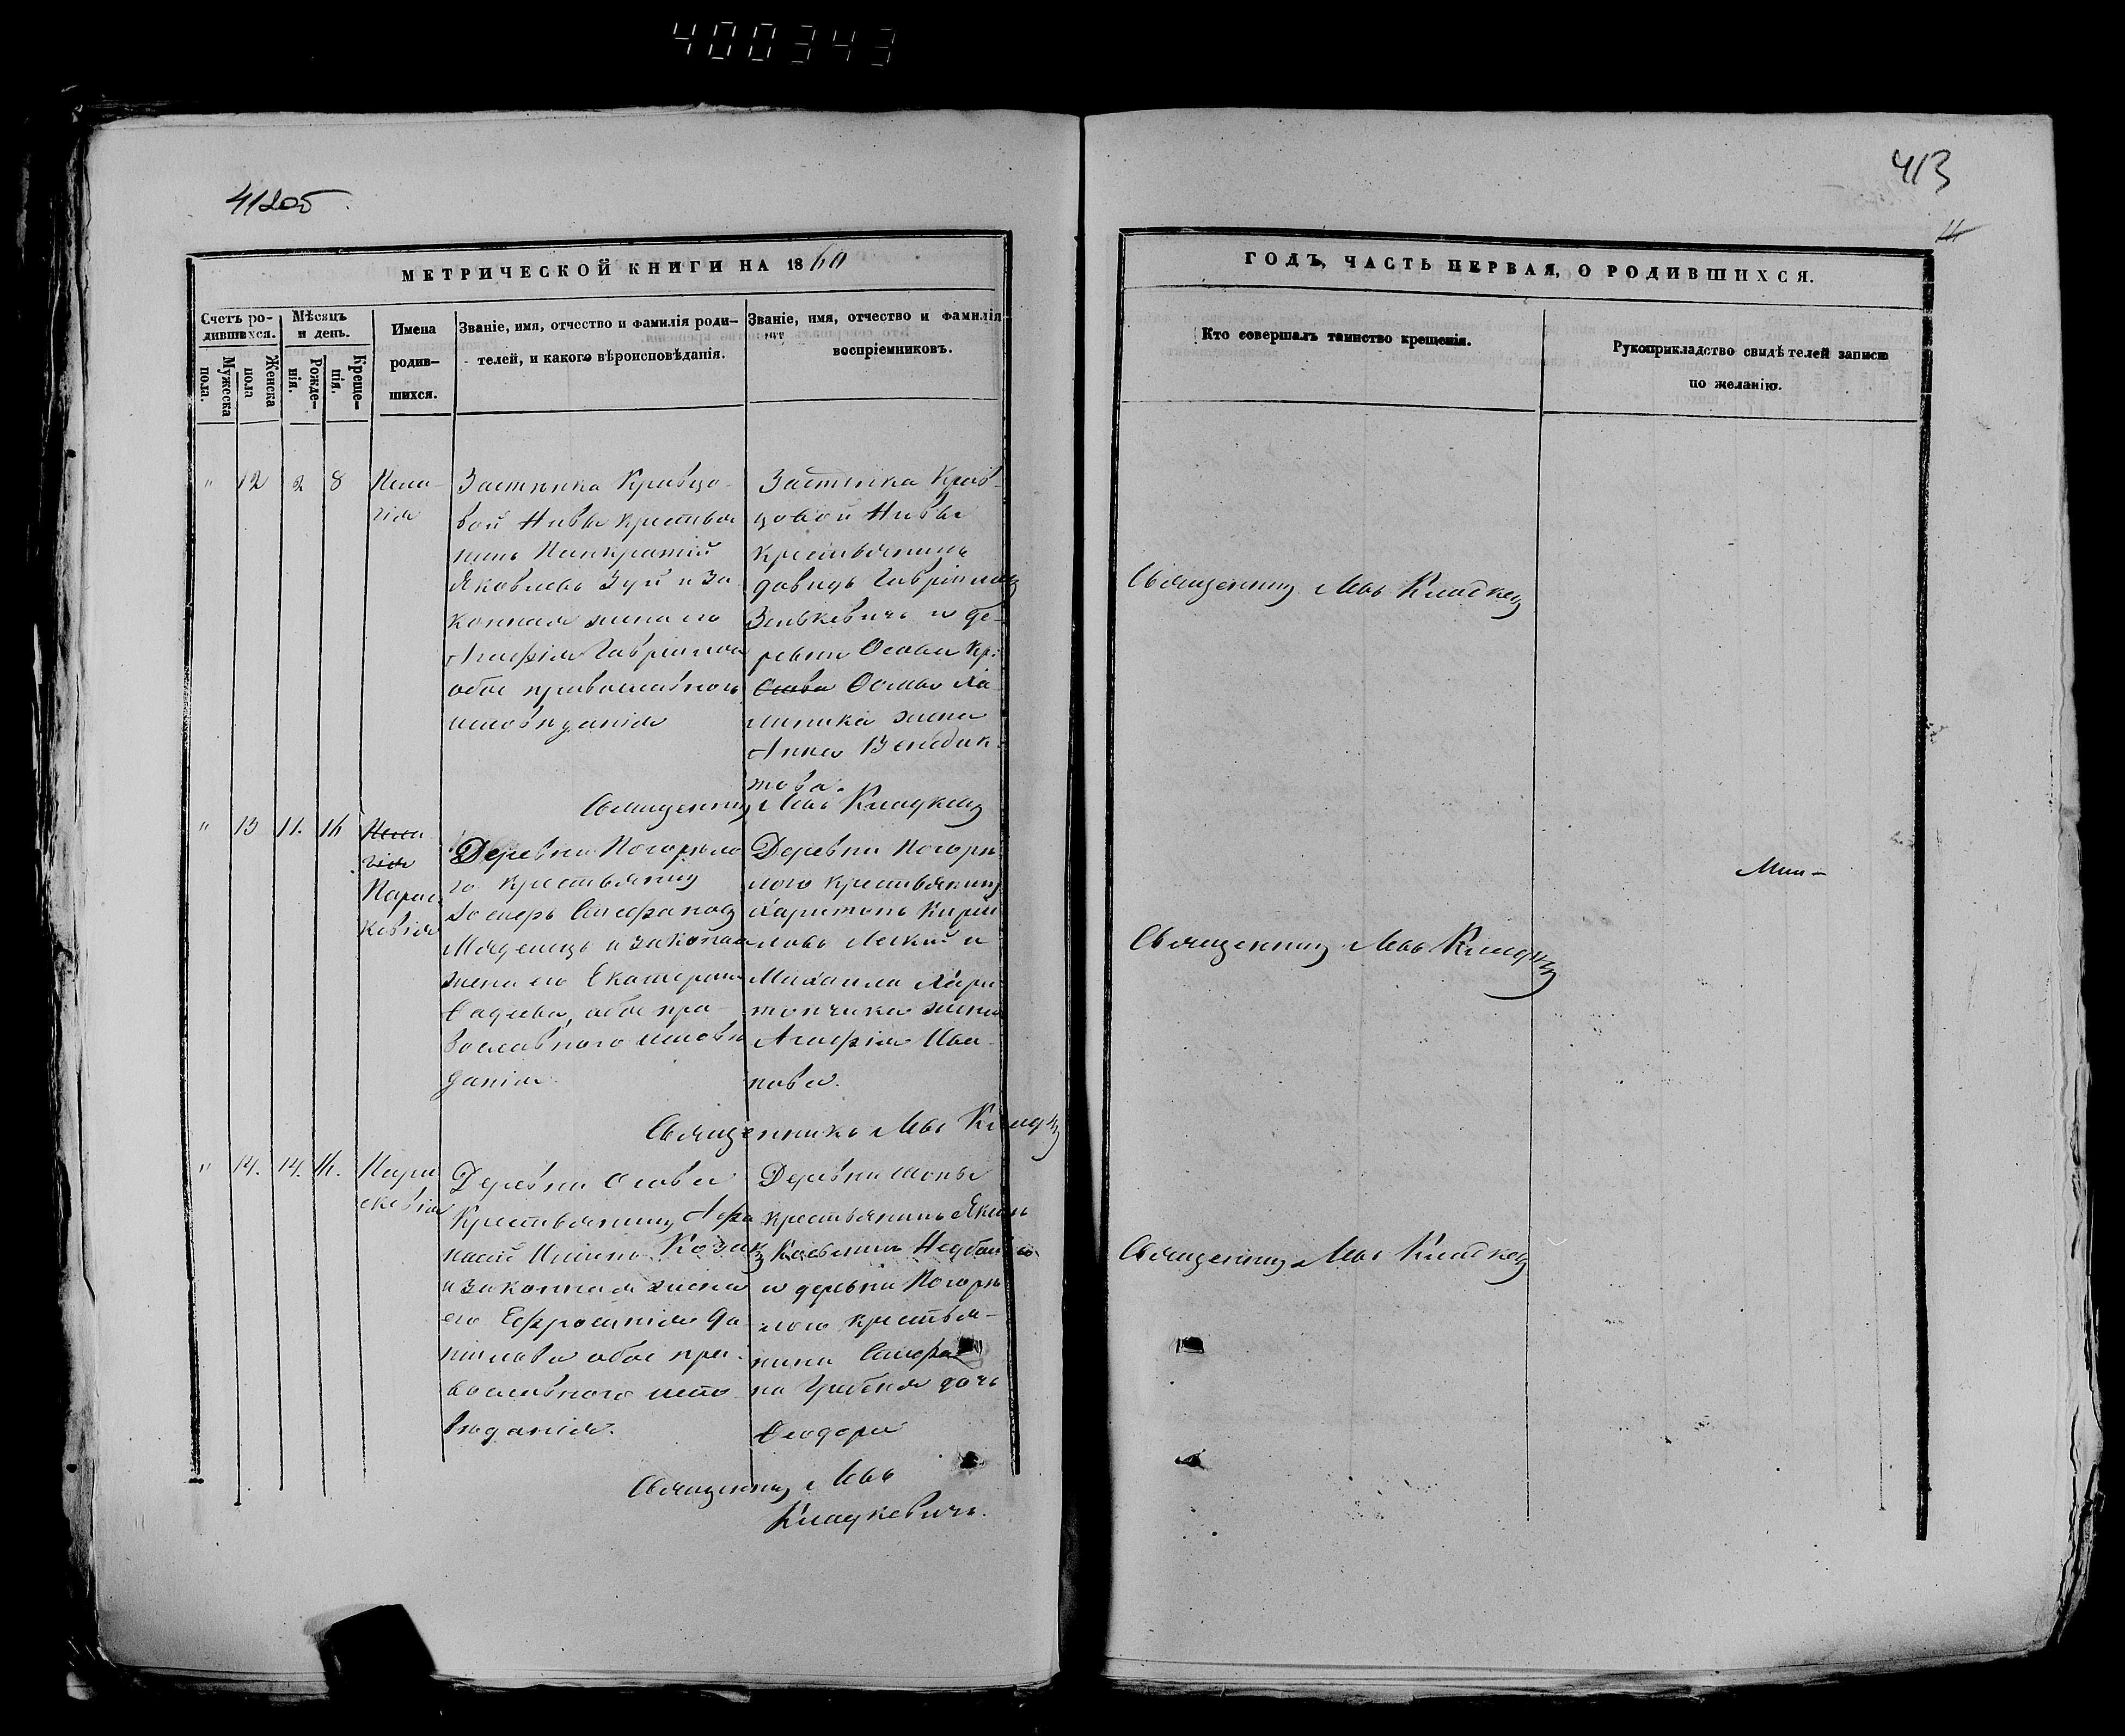 400343
412об
413
МЕТРИЧЕСКОЙ КНИГИ НА 1860
ГОДЪ, ЧАСТЬ ПЕРВАЯ, О РОДИВШИХСЯ.
Счетъ родившихся.
Мужеска пола.
Женска пола
Мѣсяцъ и день.
Рожденія.
Крещенія.
Имена
родив-
шихся.
Званіе, имя, отчество и фамилія роди-
телей, и какого вѣроисповѣданія.
Званіе, имя, отчество и фамилія
воспріемниковъ.
Кто совершалъ таинство крещенія.
Рукоприкладство свидѣтелей записи
по желанію.
" 12 2 8
Пела-
гія
Застѣнка Кравцо-
вой Нивы крестья
нинъ Панкратій
Яковлевъ Зуй и за
конная жена его
Агафія Гавриилова
обое православнаго
исповѣданія
Застѣнка Крав-
цовой Нивы
крестьянинъ
Давидъ Гавріиловъ
Зенькевичъ и де-
ревни Осовы кр:
Осовы
жена
Анна Венедик-
това.
Священникъ Левъ
Священникъ Левъ
" 13 11. 16
Пела
гія
Парас
кевія
Деревни Погорѣло
го крестьянинъ
Стефановъ
и законная
жена его Екатерина
Фадеева, обое пра-
вославнаго исповѣ
данія.
Деревни Погорѣ
лого крестьянинъ
Харитонъ Кирил
ловъ и
Михаила Хари
тончика жена
Агафія Ива-
нова.
Священникъ Левъ
Священникъ Левъ
" 14. 14. 16.
Пара
скевія
Деревни Осовы
Крестьянинъ Афа
насій Козакъ
и законная жена
его Ефросинія Да-
нилова обое пра-
вославнаго испо
вѣданія.
Деревни
крестьянинъ
и деревни Погорѣ
лого крестья-
нина Стефа
на дочь
Феодора
Священникъ Левъ
Кладкевичъ.
Священникъ Левъ